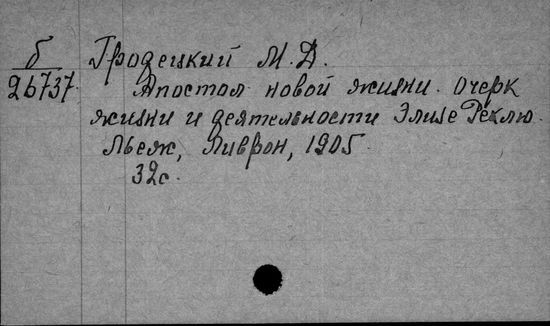 б Гродецкий М. Д.
26737 Апостол новой жизни. Очерк
жизни и деятельности Элизе Реклю.
Льеж, Ливрон, 1905.
32с.